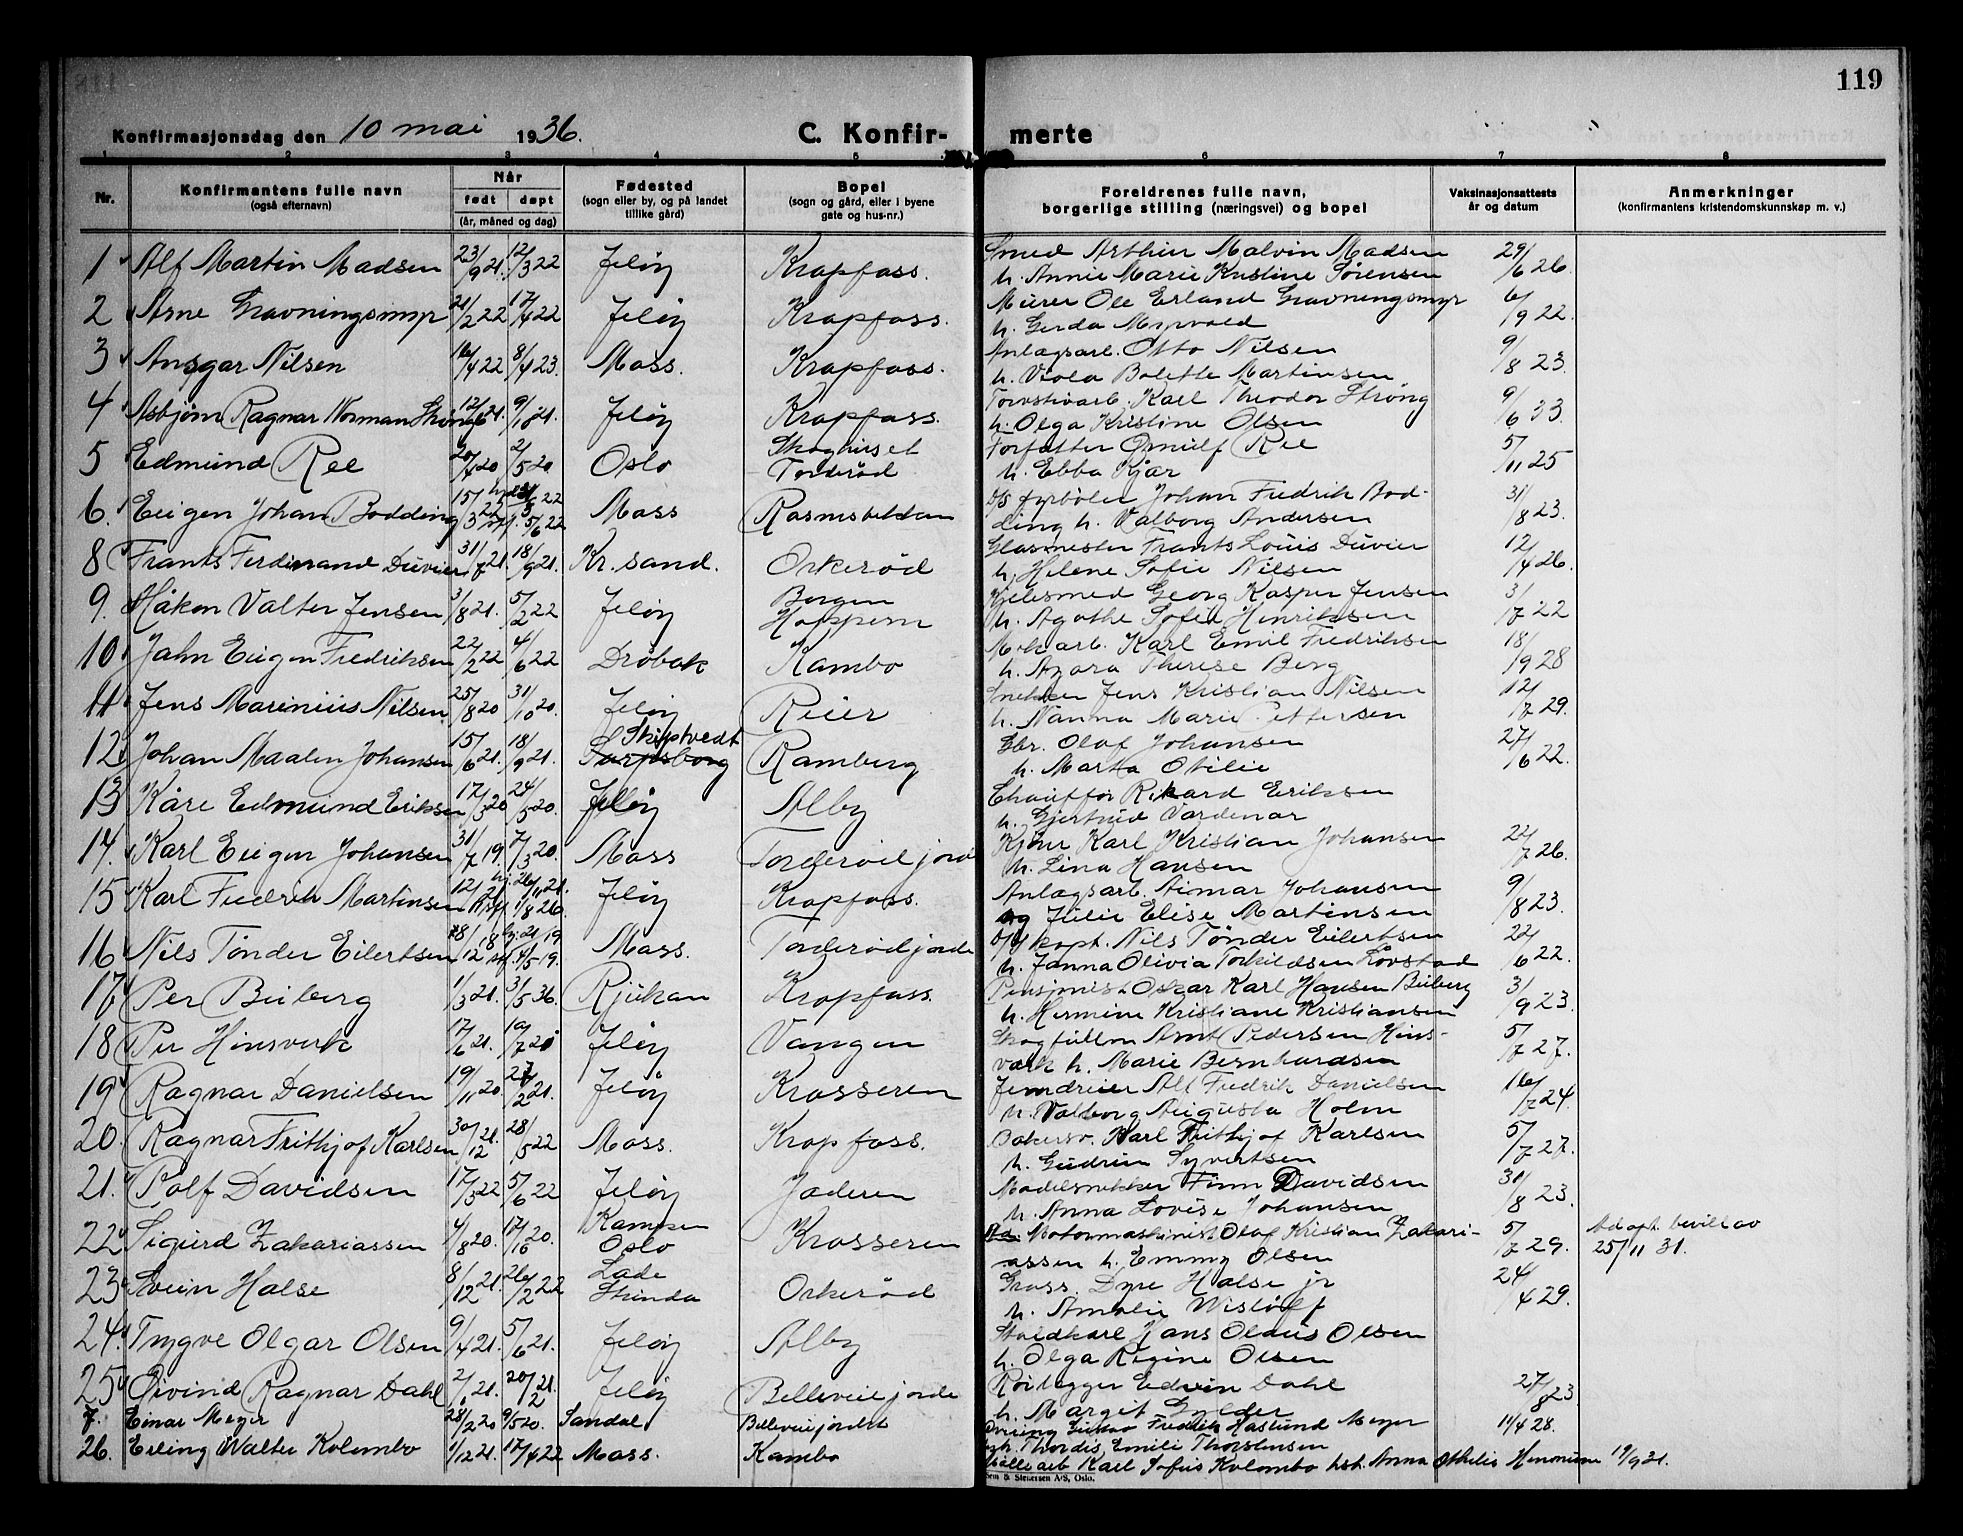 119
Konfirmasjonsdag den 10 mai 1936. C. Konfirmerte
1 2 3 4 5 6 7 8
Nr. Konfirmantens fulle navn (også efternavn) Når født døpt (år, måned og dag) Fødested (sogn eller by, og på landet tillike gård) Bopel (sogn og gård, eller i byene gate og hus-nr.) Foreldrenes fulle navn, borgerlige stilling (næringsvei) og bopel Vaksinasjonsattests år og datum Anmerkninger (konfirmantens kristendomskunnskap m. v.)
1 Alf Martin Madsen 23/9 21. 12/3 22 Jeløy Krapfoss. Smed Arthur Malvin Madsen 29/6 26.
h. Annie Marie Kristine Sørensen
2 Arne Gravningsmyr 21/2 22 17/4 22 Jeløy Krapfoss. Murer Ole Erland Gravningsmyr 6/9 22.
h. Gerda Myrvold
3 Ansgar Nilsen 16/4 22 8/4 23. Moss. Krapfoss. Anlægsarb. Otto Nilsen 9/8 23.
h. Viola Bolette Martinsen
4 Asbjørn Ragnar Norman Strøng 12/6 21. 9/10 21. Jeløy Krapfoss. Karl Theodor Strøng 9/6 33.
h. Olga Kristine Olsen
5 Edmund Ree 20/4 20 2/5 20 Oslo Skoghuset Torderød Forfatter Ørnulf Ree 5/11 25
h. Ebba Kjær
6. Eugen Johan Bodding 15/3 22 5/6 22 Moss Rasmsbakken fyrbøter Johan Fredrik Bod- 31/8 23.
ding h. Valborg Andersen
8 Frants Ferdinand Duvier 31/7 21. 18/9 21. Kr. sand. Orkerød Glasmester Frants Louis Duvier 12/4 26.
h. Helene Sofie Nilsen
9. Håkon Valter Jensen 3/8 21. 5/2 22 Jeløy Borgen Hoppern Kjelesmed Georg Kasper Jensen 3/7 22
h. Agathe Sofie Henriksen
10. Jahn Eugen Fredriksen 22/2 22 4/6 22 Drøbak Kambo Mek arb. Karl Emil Fredriksen 18/9 28
h. Azora Therese Berg
11. Jens Marinius Nilsen 25/8 20 31/10 20. Jeløy Reier Snekker Jens Kristian Nilsen 12/7 29.
h. Nanna Marie Pettersen
12. Johan Maalen Johansen 15/6 21. 18/9 21. Skiptvedt Sarpsborg Ramberg Gbr. Olaf Johansen 27/6 22.
h. Marta Otilie
13 Kåre Edmund Eriksen 17/3 20 24/5 20. Jeløy Alby Chauffør Rikard Eriksen
h. Gjertrud Vardenær
14. Karl Eugen Johansen 31/7 19. 7/3 20. Moss Torderød jorde Kjører Karl Kristian Johansen 22/7 26.
h. Lina Hansen
15 Karl Fredrik Martinsen 12/11 21 hj. 26/11 21. 1/8 26. Jeløy Krapfoss. Anlægsarb. Aimar Johansen 9/8 23.
og Julie Elise Martinsen
16 Nils Tønder Eilertsen 28/12 18 hj. 21/1 19 stf. 4/5 19. Moss. Torderød jorde kapt. Nils Tønder Eilertsen 22/6 22.
h. Janna Olivia Torkildsen Rovstad
17 Per Buberg 1/3 21. 3/5 36. Rjukan Krapfoss. Pensjonist Oskar Karl Hansen Buberg 3/9 23.
h. Hermine Kristiane Kristiansen
18 Per Hinsverk 17/6 21. 10/7 21 Jeløy Vangen Skogfullm Arnt Pedersen Hins- 5/7 27.
værk h. Marie Bernhardsen
19 Ragnar Danielsen 19/11 20 27/2 21. Jeløy Krosseren Jerndreier Alf Fredrik Danielsen 16/7 24.
h. Valborg Augusta Holm
20. Ragnar Frithjof Karlsen 30/12 21. 28/5 22 Moss. Krapfoss. Bakersv. Karl Frithjof Karlsen 5/7 27.
h. Gudrun Syvertsen
21. Rolf Davidsen 17/3 22 5/6 22 Jeløy Joderen Modelsnekker Finn Davidsen 31/8 23.
h. Anna Lovise Johansen
22 Sigurd Zakariassen 4/8 20. 17/10 20. Kampen Oslo Krosseren Ad. Motormaskinist Olaf Kristian Zakari- 5/7 29. Adopt. bevill av
assen h. Emmy Olsen 25/11 31.
23. Svein Halse 8/12 21. 26/2 22 Lade Strinda Orkerød Gross. Dyre Halse jr 24/4 29.
h. Amalie Wisløff
24. Trygve Olgar Olsen 9/4 21. 5/6 21. Jeløy Alby Staldkarl Hans Olaus Olsen
h. Olga Regine Olsen
25 Øivind Ragnar Dahl 2/1 21. 20/2 21. Jeløy Belleveie jorde Rørlegger Edvin Dahl 27/8 23
h. Margit Gylder
7. Einar Meyer 28/2 20 9/5 20. Sandal Belleveiejordet Gustav Fredrik Haslund Meyer 11/4 28.
h. Thordis Emilie Thorstensen
26. Erling Walter Kolombo 1/12 21. 17/4 22 Moss. Kambo Karl Sofus Kolombo hst. Anna Othilie 19/9 21.
Sem & Stenersen A/S, Oslo.